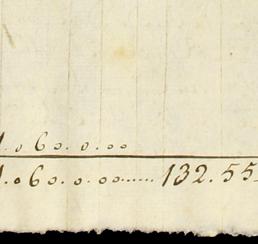 1.060.0.00
1.060.0.00...... 132.55